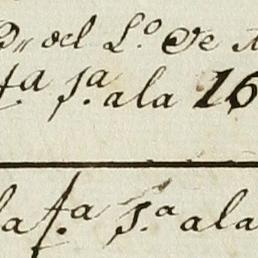 del L.º De
f.ª J.ª ala 16
la f.ª J.ª ala